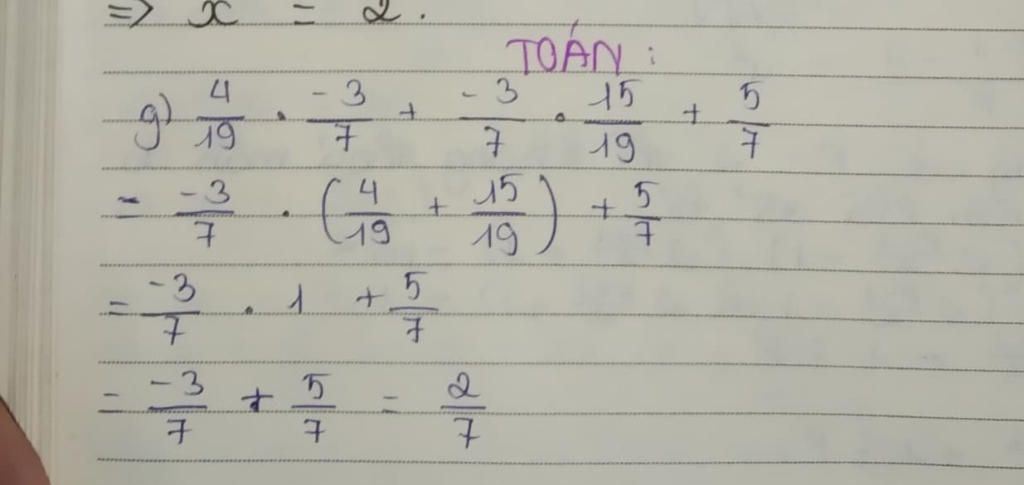 => x = 2.
TOÁN:
g) 4/19 . -3/7 + -3/7 . 15/19 + 5/7
= -3/7 . (4/19 + 15/19) + 5/7
= -3/7 . 1 + 5/7
= -3/7 + 5/7 = 2/7